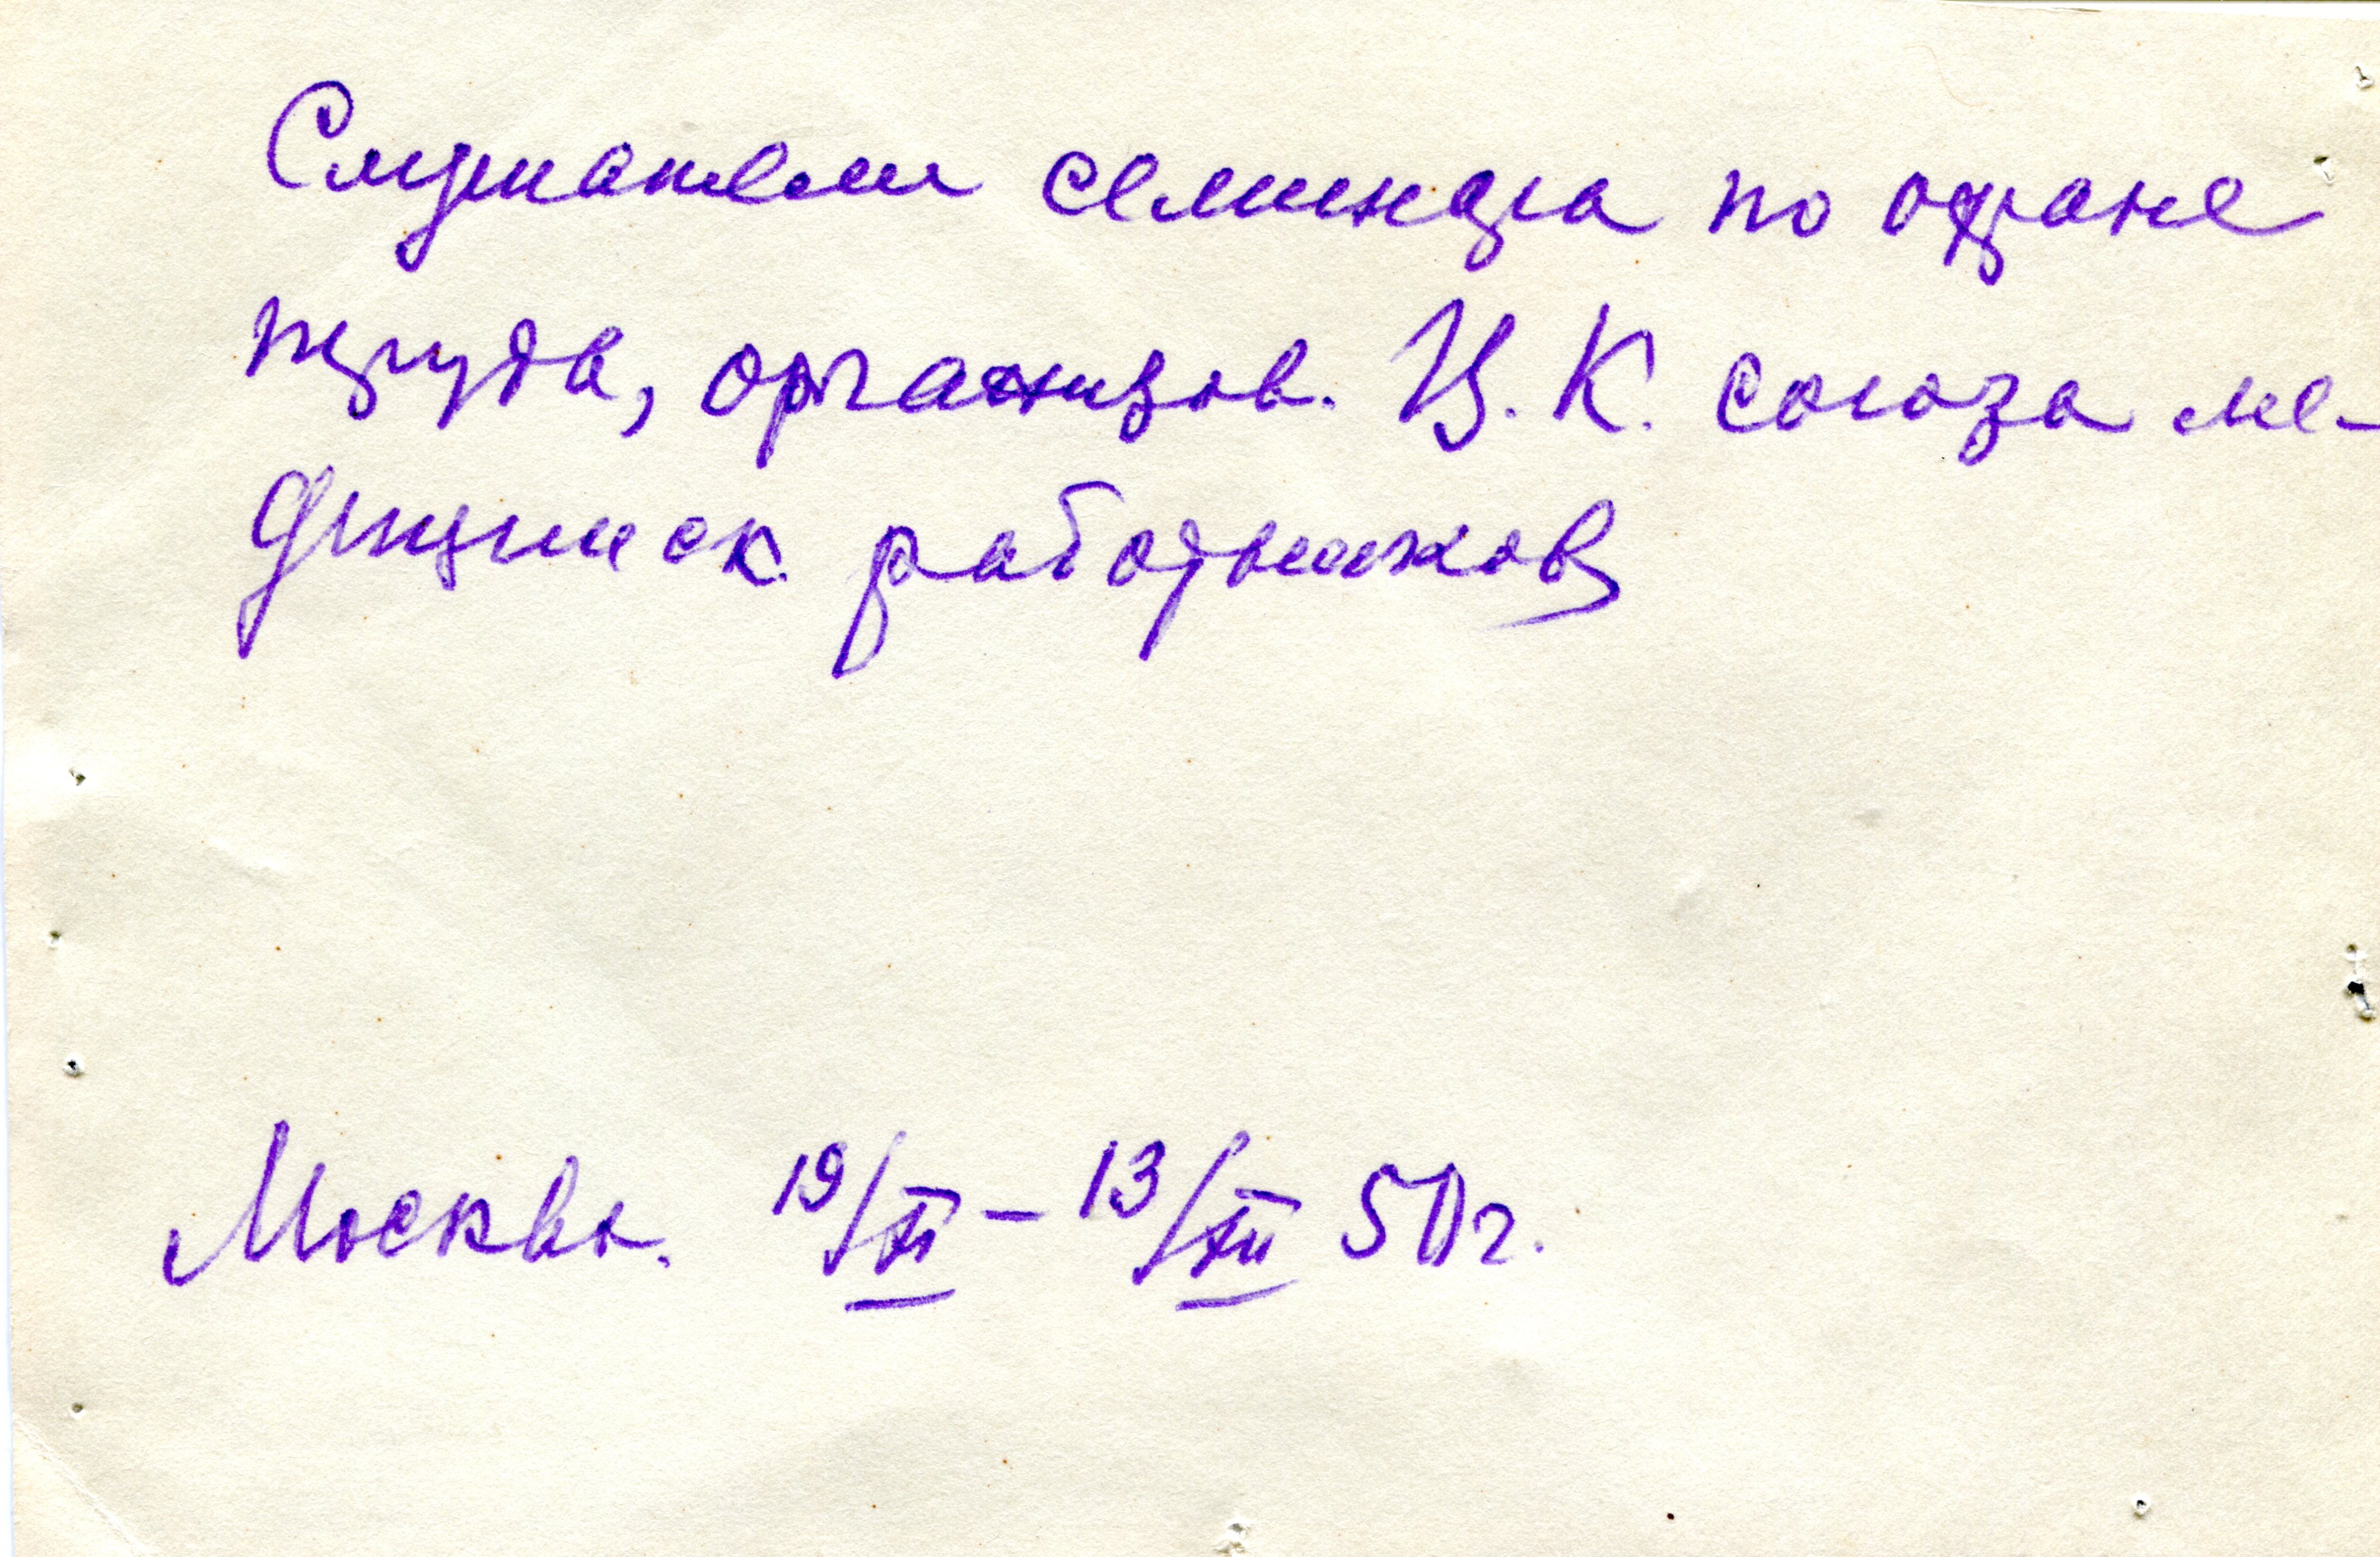 Слушатели семинара по охране
труда, организов. Ц.К. союза ме-
дицинск. работников
Москва. 19/XI – 13/XII 50г.